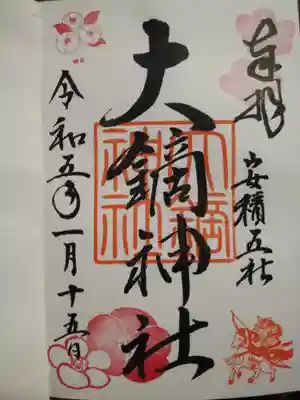 奉拝
安積五社
大鏑神社
令和五年一月十五日